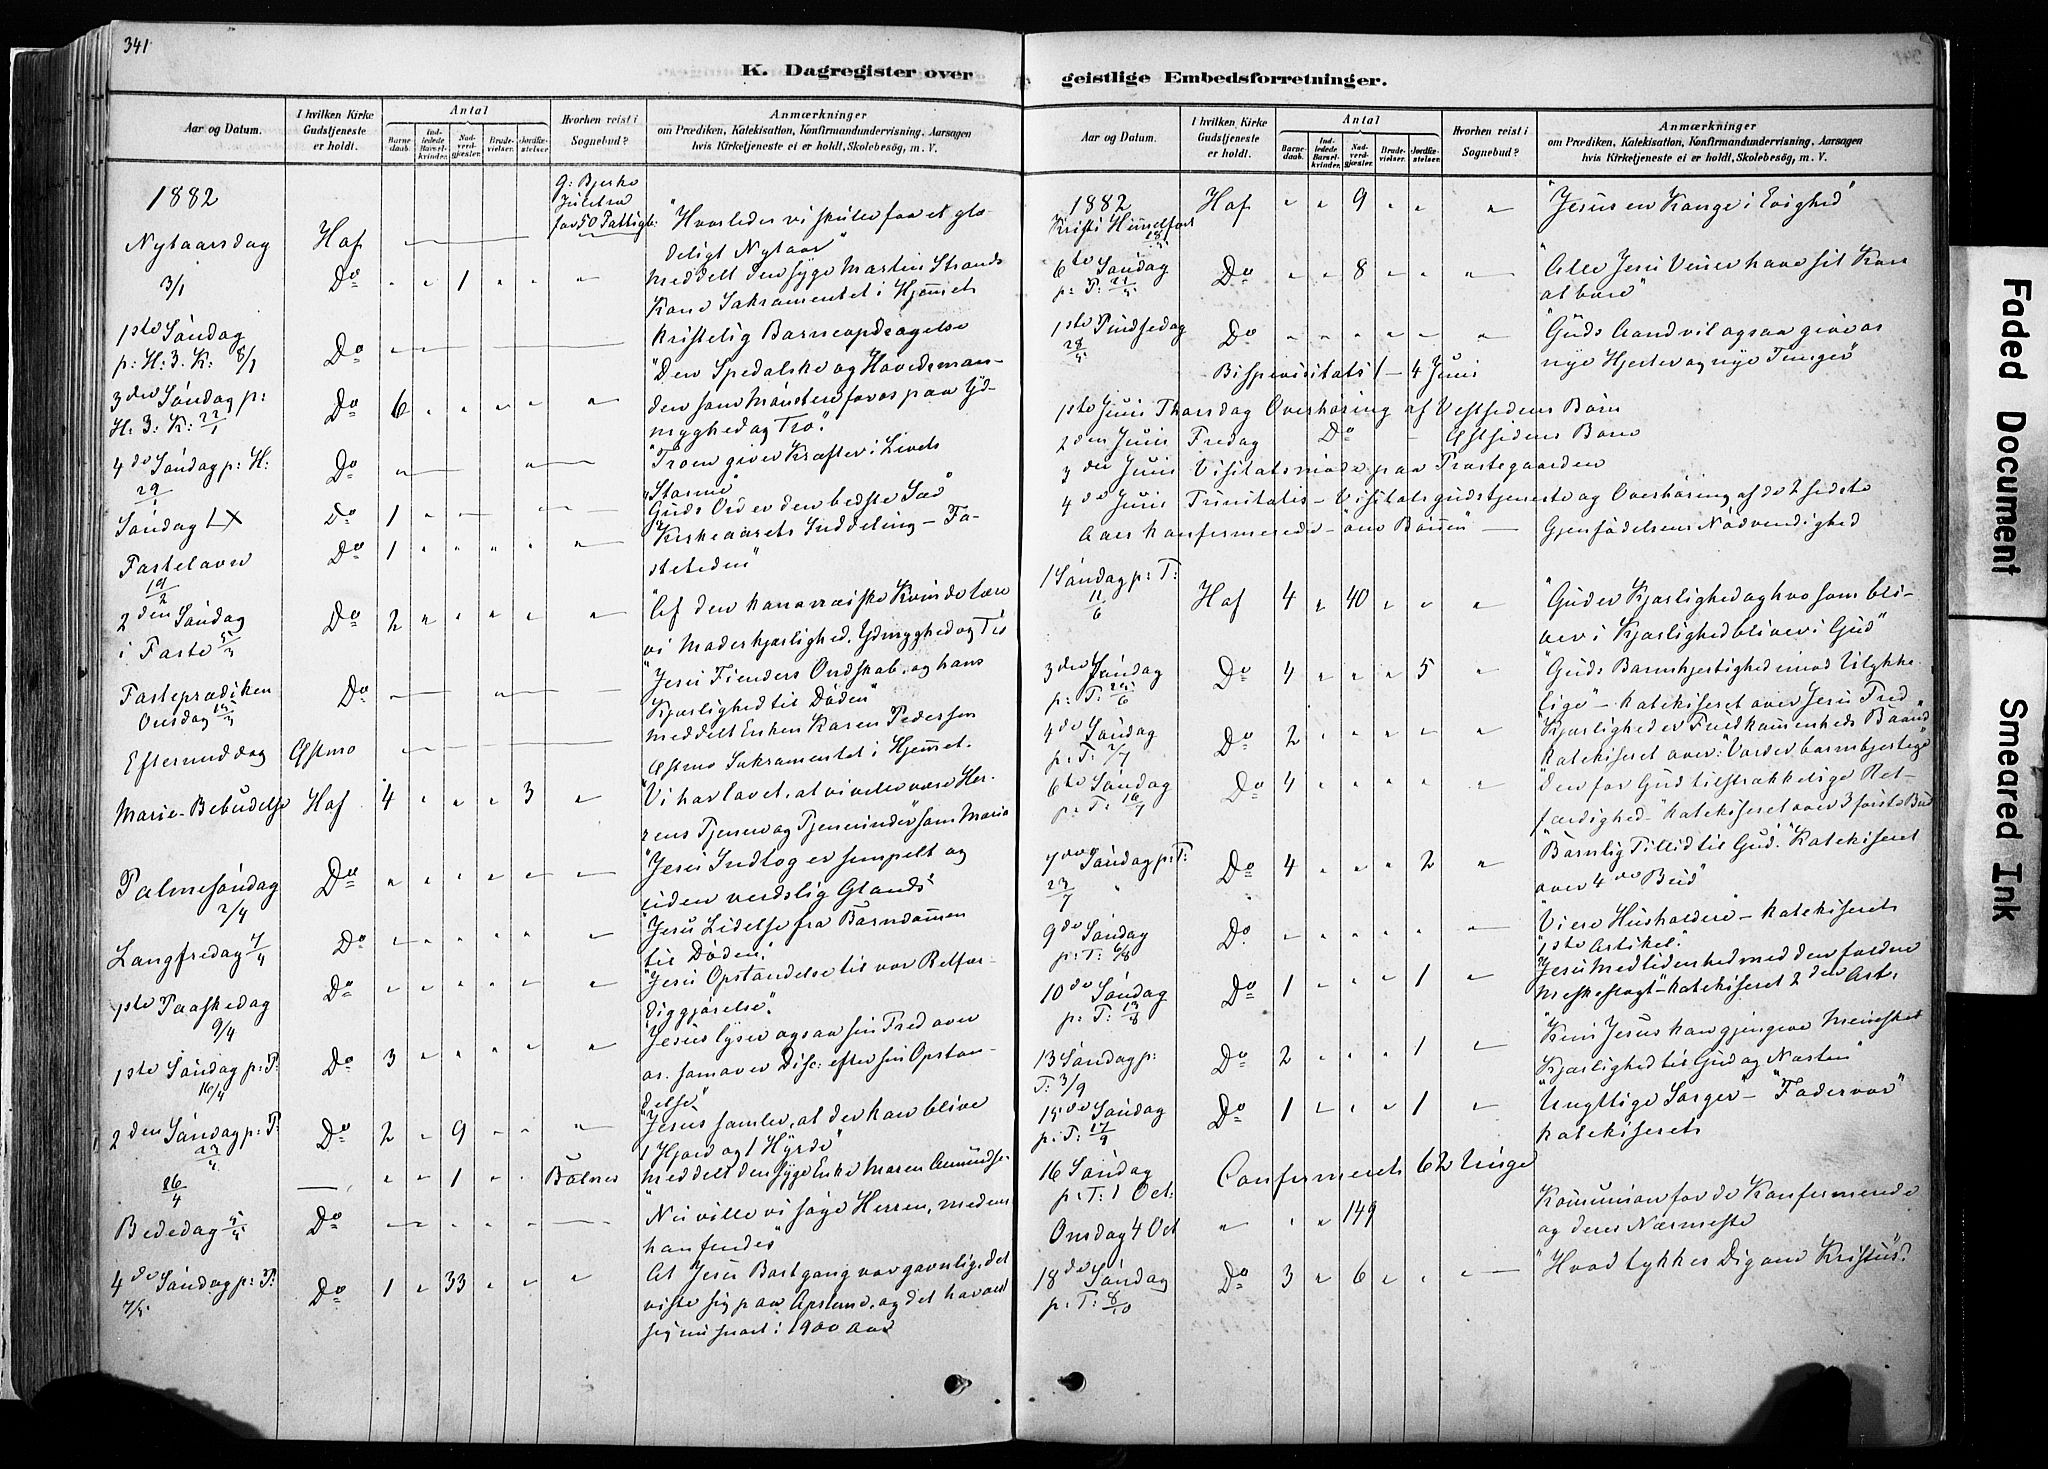 341
K. Dagregister over
Aar og Datum.
I hvilken Kirke Gudstjeneste er holdt.
Antal
Barnedaab.
Indledede Barselkvinder.
Nadverdgjæster.
Brudevielser.
Jordfæstelser.
Hvorhen reist i Sognebud?
Anmærkninger
om Prædiken, Katekisation, Konfirmandundervisning, Aarsagen
hvis Kirketjeneste ei er holdt, Skolebesög, m. V.
1882
Nytaarsdag Hof "Hvorledes vi skulle faa et glæ
deligt Nytaar"
3/1 Do 1 meddelt den syge Martin Strands
Kone Sakramentet i Hjemet
1ste Söndag
p: H: 3. K: 8/1 Do Kristelig Barneopdragelse
3den Söndag p:
H: 3: K: 22/1 Do 6 "Den Spedalske og Hovedsman-
den som Mönstere for os paa Yd-
myghed og Tro".
4de Söndag p: H:
29/1 Do "Troen giver Kræfter i Livets
Storme"
Söndag LX Do 1 "Guds Ord er den bedste Sæd"
Fastelavn
19/2 Do 1 "Kirkeaarets Inddeling – Fa-
stetiden"
2den Söndag
i Faste 5/3 Do 2 "Af den kananæiske Kvinde lære
vi Moderkjærlighed, Ydmyghed og
Fasteprædiken
Onsdag 15/3 Do "Jesu Fienders Ondskab, og hans
Kjærlighed til Döden"
Eftermiddag Astmo meddelt Enken Karen Pedersen
Astmo Sakramentet i Hjemet.
Marie Bebudelse Hof 4 3 "Vi har lovet, at vi ville være Her-
rens Tjenere og Tjenerinder" som Maria
Palmesöndag
2/4 Do "Jesu Indtog er simpelt og
uden verdslig Glands"
Langfredag 7/4 Do "Jesu Lidelse fra Barndommen
til Döden".
1ste Paaskedag
9/4 Do "Jesu Opstandelse til vor Retfær-
diggjörelse".
1ste Söndag p: P:
16/4 Do 3 "Jesus lyser ogsaa sin Fred over
os. som over Disc: efter sin Opstan-
delse"
2den Söndag p: P:
23/4 Do 2 9 "Jesus samler, at der kan blive
1 Hjord og 1 Hyrde"
26/4 1 meddelt den syge Enke Maren Amundse
Bededag 5/5 Do "Nu ville vi söge Herren, medens
han findes"
4de Söndag p: P:
7/5 Do 1 33 At Jesu Bortgang var gavnlig, det
viste sig paa Apstlene, og det har vist
sig nu snart i 1900 Aar
geistlige Embedsforretninger.
Aar og Datum.
I hvilken Kirke Gudstjeneste er holdt.
Antal
Barnedaab.
Indledede Barselkvinder.
Nadverdgjæster.
Brudevielser.
Jordfæstelser.
Hvorhen reist i Sognebud?
Anmærkninger
om Prædiken, Katekisation, Konfirmandundervisning, Aarsagen
hvis Kirketjeneste ei er holdt, Skolebesög, m. V.
1882
Kristi Himmelfart
18/5 Hof 9 "Jesus en Konge i Evighed"
6te Söndag
p: P: 21/5 Do 8 "Alle Jesu Venner have sit Kors
at bære"
1ste Pindsedag
28/5 Do "Guds Aand vil ogsaa give os
nye Hjerter og nye Tunger"
Bispevisitats 1 – 4 Juni
1ste Juni Thorsdag Overhöring af Vestsidens Börn
2den Juni Fredag Do – Östsidens Börn
3die Juni Visitatsmöde paa Prestegaarden
4de Juni Trinitatis – Visitatsgudstjeneste og Overhöring af de 2 sidste
Aars Konfirmerede – Gjenfödelsens Nödvendighed
1 Söndag p: T:
11/6 Hof 4 40 "Gud er Kjærlighed og hvo som bli-
ver i Kjærlighed bliver i Gud"
3die Söndag
p: T: 25/6 Do 4 5 "Guds Barmhjertighed imod Ulykke-
lige" – katekiseret over Jesu Fred
4de Söndag
p: T: 2/7 Do 2 "Kjærlighed er Fuldkommenheds Baand"
katekiseret over: "Vorder barmhjertige"
6te Söndag
p: T: 16/7 Do 4 "Den for Gud tilstrækkelige Ret-
færdighed – " katekiseret over 3 förste Bud
7de Söndag p: T:
23/7 Do 4 2 "Barnlig Tillid til Gud." Katekiseret
over 4de Bud"
9de Söndag
p: T: 6/8 Do "Vi ere Husholdere – katekiseret
1ste Artikel."
10de Söndag
p: T: 13/8 Do 1 1 "Jesu Medlidenhed med den faldne
Meskeslægt – katekiseret 2den Art:
13 Söndag p:
T: 3/9 Do 2 1 "Kun Jesus kan gjengive Mennesket
Kjærlighed til Gud og Næsten"
15de Söndag
p: T: 17/9 Do 1 1 "Unyttige Sorger" – "Fadervor"
katekiseret
16 Söndag
p: T: 1 Oct: Confirmeret 62 Unge
Onsdag 4 Oct 149 Kommunion for de Konfirmerede
og deres Nærmeste
18de Söndag
p: T: 8/10 Do 3 6 "Hvad tykkes Dig om Kristus"?
Faded Document
Smeared Ink